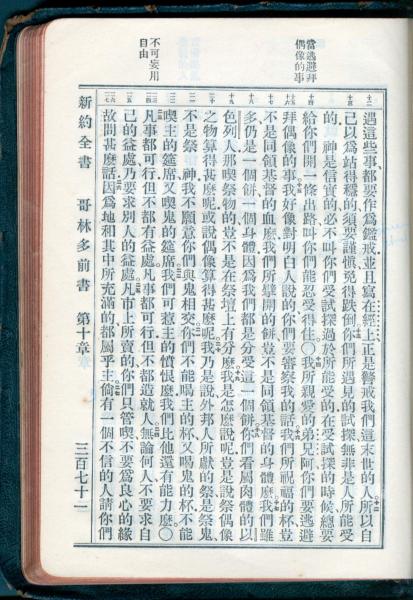 當逃避拜
偶像的事
不可妄用
自由
遇這些事都要作爲鑑戒並且寫在經上正是警戒我們這末世的人所以自
己以爲站得穩的須要謹愼免得跌倒你們所遇見的試探無非是人所能受
的神是信實的必不叫你們受試探過於所能受的在受試探的時候總要
給你們開一條出路叫你們能忍受得住〇我所親愛的弟兄阿你們要逃避
拜偶像的事我好像對明白人說的你們要審察我的話我們所祝福的杯豈
不是同領基督的血麼我們所擘開的餅豈不是同領基督的身體麼我們雖
多仍是一個餅一個身體因爲我們都是分受這一個餅你們看屬肉體的以
色列人那喫祭物的豈不是在祭壇上有分麼我是怎麼說呢豈是說祭偶像
之物算得甚麼呢或說偶像算得甚麼呢我乃是說外邦人所獻的祭是祭鬼
不是祭神我不願意你們與鬼相交你們不能喝主的杯又喝鬼的杯不能
喫主的筵席又喫鬼的筵席我們可惹主的憤恨麼我們比他還有能力麼〇
凡事都可行但不都有益處凡事都可行但不都造就人無論何人不要求自
己的益處乃要求別人的益處凡市上所賣的你們只管喫不要爲良心的緣
故問甚麼話因爲地和其中所充滿的都屬乎主倘有一個不信的人請你們
新約全書 哥林多前書 第十章 三百七十一